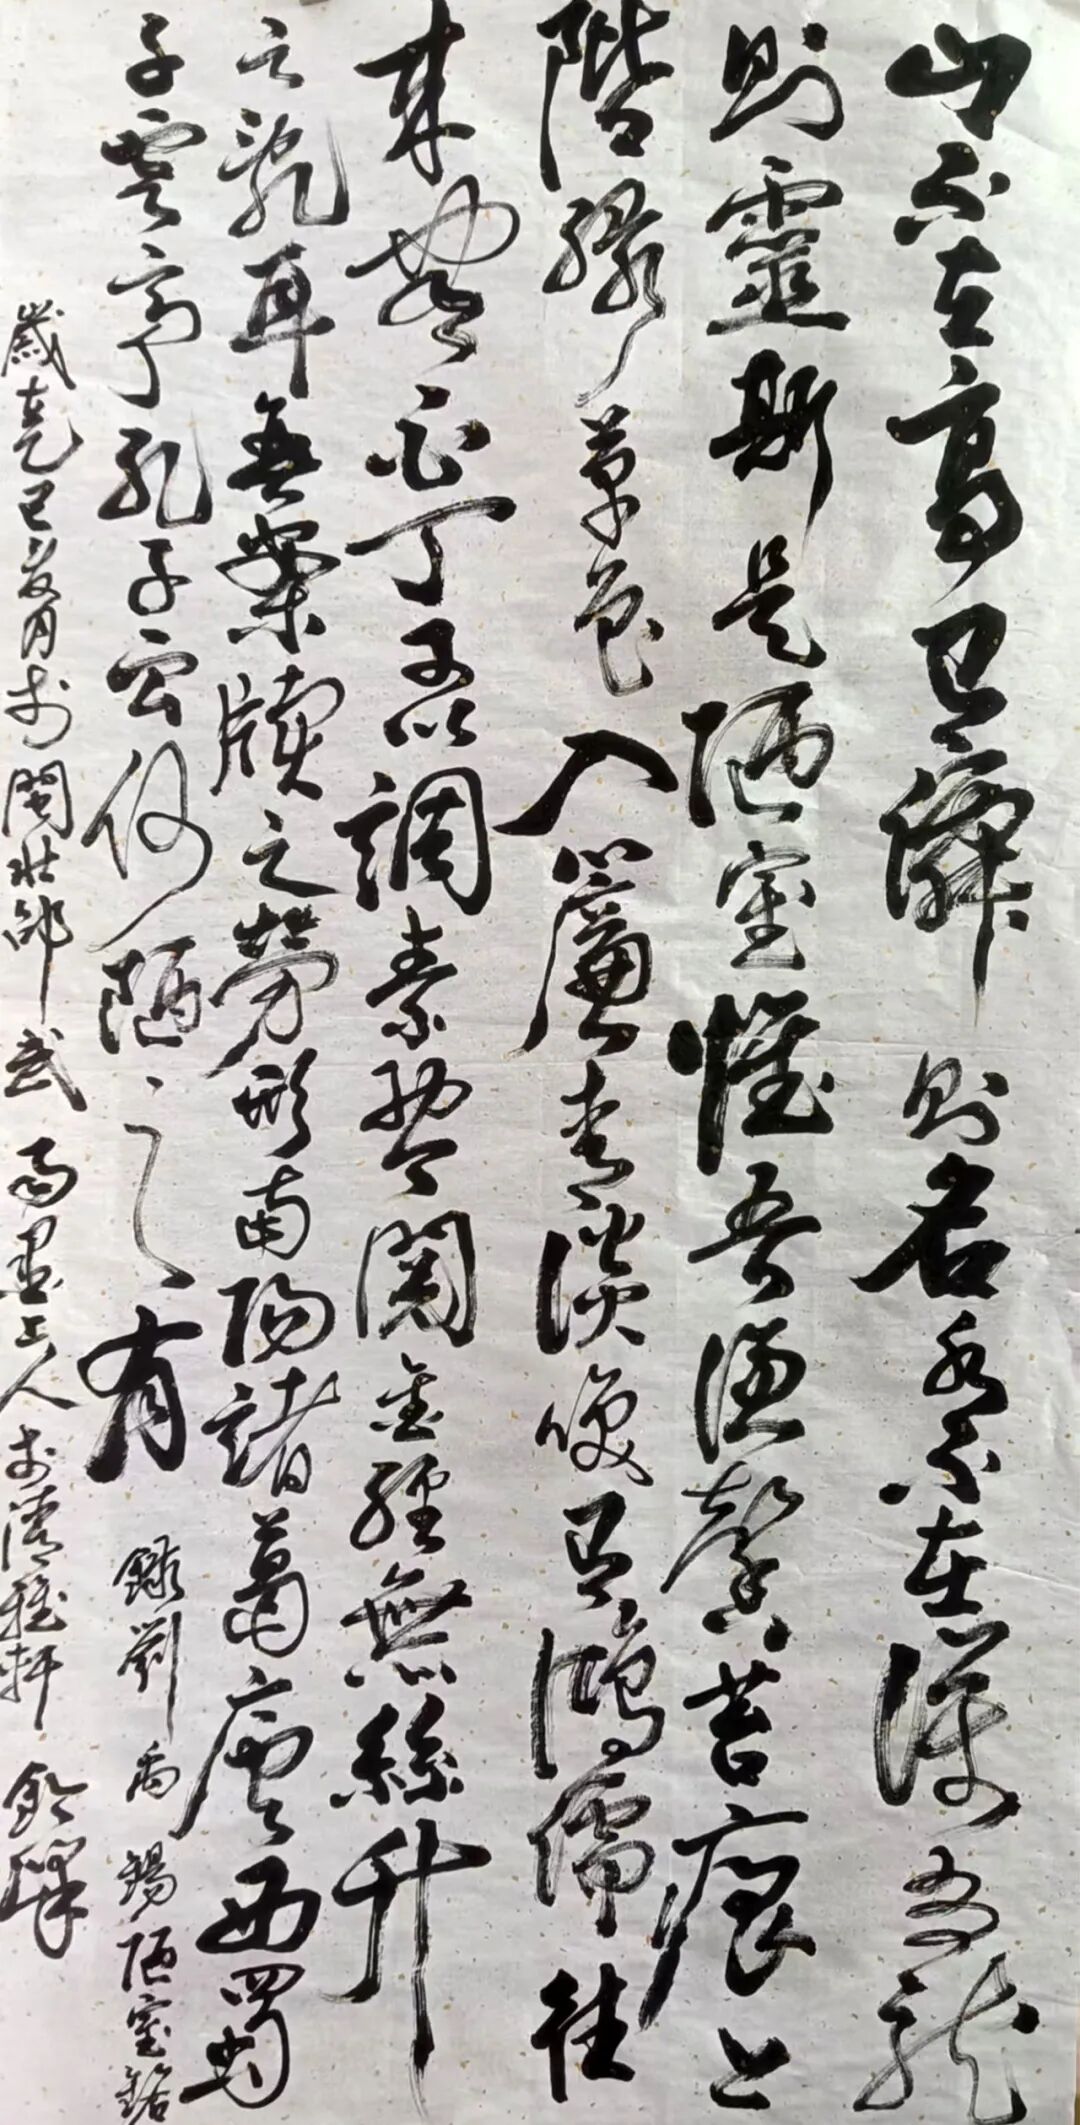 山不在高有僊則名水不在深有龍
則靈斯是陋室惟吾德馨苔痕上
階綠草色入簾青談笑有鴻儒往
來無白丁可以調素琴閱金經無絲竹
之亂耳無案牘之勞形南陽諸葛廬西蜀
子雲亭孔子云何陋之有
錄劉禹錫陋室銘
歲在乙巳 月於閩壯邵武 墨上人於清雅軒